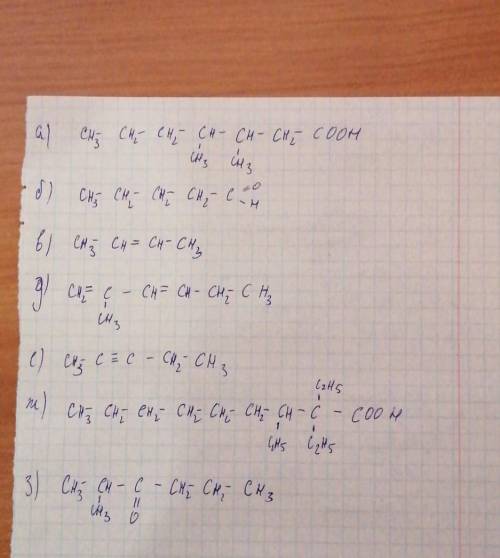 а) CH3- CH2- CH2- CH- CH- CH2- COOH
CH3 CH3
б) CH3- CH2- CH2- CH2- C =O
-H
в) CH3- CH = CH- CH3
д) CH2= C - CH= CH- CH2- CH3
CH3
е) CH3- C ≡ C - CH2- CH3
C2H5
ж) CH3- CH2- CH2- CH2- CH2- CH2- CH - C - COOH
C2H5
з) CH3- CH - C - CH2- CH2- CH3
CH3 O